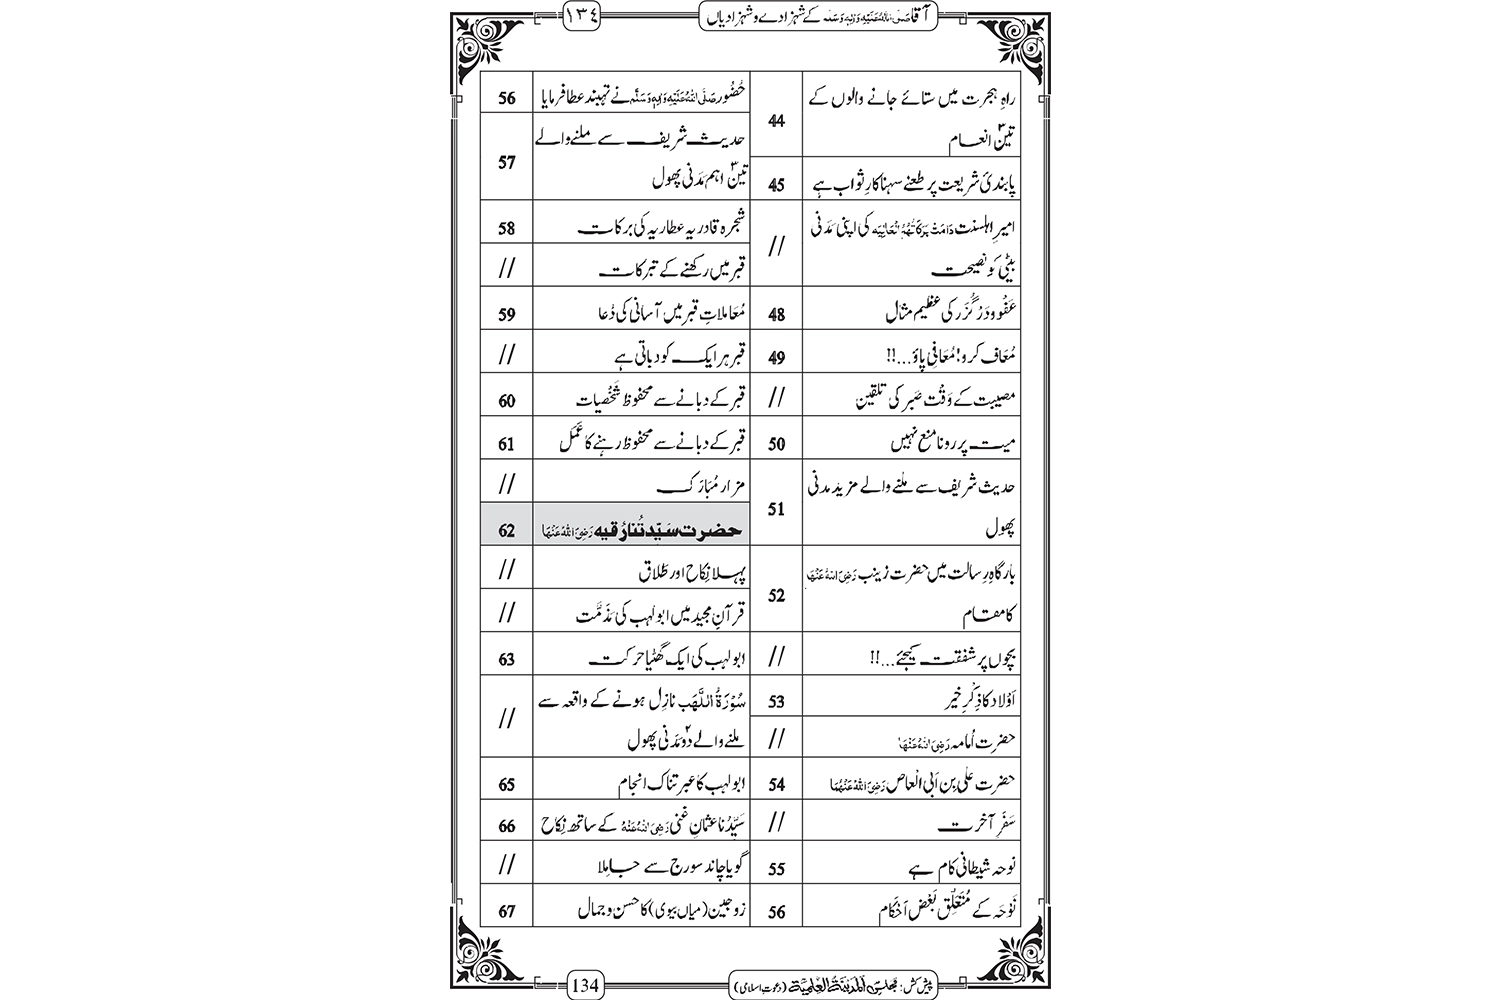 آقا صَلَّی اللّٰہُ عَلَیْہِ وَاٰلِہٖ وَسَلَّم کے شہزادے و شہزادیاں ١٣٤
راہِ ہجرت میں ستائے جانے والوں کے
تین۳ انعام 44
پابندیٔ شریعت پر طعنے سہنا کارِ ثواب ہے 45
امیرِ اہلسنت دَامَتْ بَرَکَاتُہُمُ الْعَالِیَہ کی اپنی مَدَنی
بیٹی کو نصیحت //
عَفْو ودَرْگُزَر کی عظیم مثال 48
مُعاف کرو! مُعافی پاؤ...!! 49
مصیبت کے وَقْت صَبر کی تلقین //
میت پر رونا منع نہیں 50
حدیث شریف سے ملنے والے مزید مدنی
پھول 51
بارگاہِ رِسالت میں حضرت زینب رَضِیَ اللّٰہُ عَنْہَا
کا مقام 52
بچوں پر شفقت کیجئے...!! //
اَوْلاد کا ذِکْرِ خیر 53
حضرت اُمامہ رَضِیَ اللّٰہُ عَنْہَا //
حضرت علی بن اَبی الْعاص رَضِیَ اللّٰہُ عَنْہُمَا 54
سَفَرِ آخرت //
نوحہ شیطانی کام ہے 55
نَوْحَہ کے مُتَعَلِّق بَعْض اَحْکام 56
حُضُور صَلَّی اللّٰہُ عَلَیْہِ وَاٰلِہٖ وَسَلَّم نے تہبند عطا فرمایا 56
حدیث شریف سے ملنے والے
تین۳ اہم مَدَنی پھول 57
شجرہ قادریہ عطاریہ کی برکات 58
قبر میں رکھنے کے تبرکات //
مُعَامَلاتِ قبر میں آسانی کی دُعا 59
قبر ہر ایک کو دباتی ہے //
قبر کے دبانے سے محفوظ شَخْصِیات 60
قبر کے دبانے سے محفوظ رہنے کا عَمَل 61
مزار مُبَارَک //
حضرت سَیِّدَتُنا رُقیہ رَضِیَ اللّٰہُ عَنْہَا 62
پہلا نِکاح اور طَلاق //
قرآنِ مجید میں ابولہب کی مَذَمَّت //
ابولہب کی ایک گھٹیا حرکت 63
سُوْرَۃُ اللَّھَب نازِل ہونے کے واقعہ سے
ملنے والے دو۲ مَدَنی پھول //
ابولہب کا عبرتناک انجام 65
سَیِّدُنا عثمانِ غنی رَضِیَ اللّٰہُ عَنْہُ کے ساتھ نِکاح 66
گویا چاند سورج سے جا مِلا //
زوجین (میاں بیوی) کا حسن و جمال 67
پیش کش: مجلس اَلْمَدِیْنَۃُ الْعِلْمِیَّۃ (دعوتِ اسلامی) 134